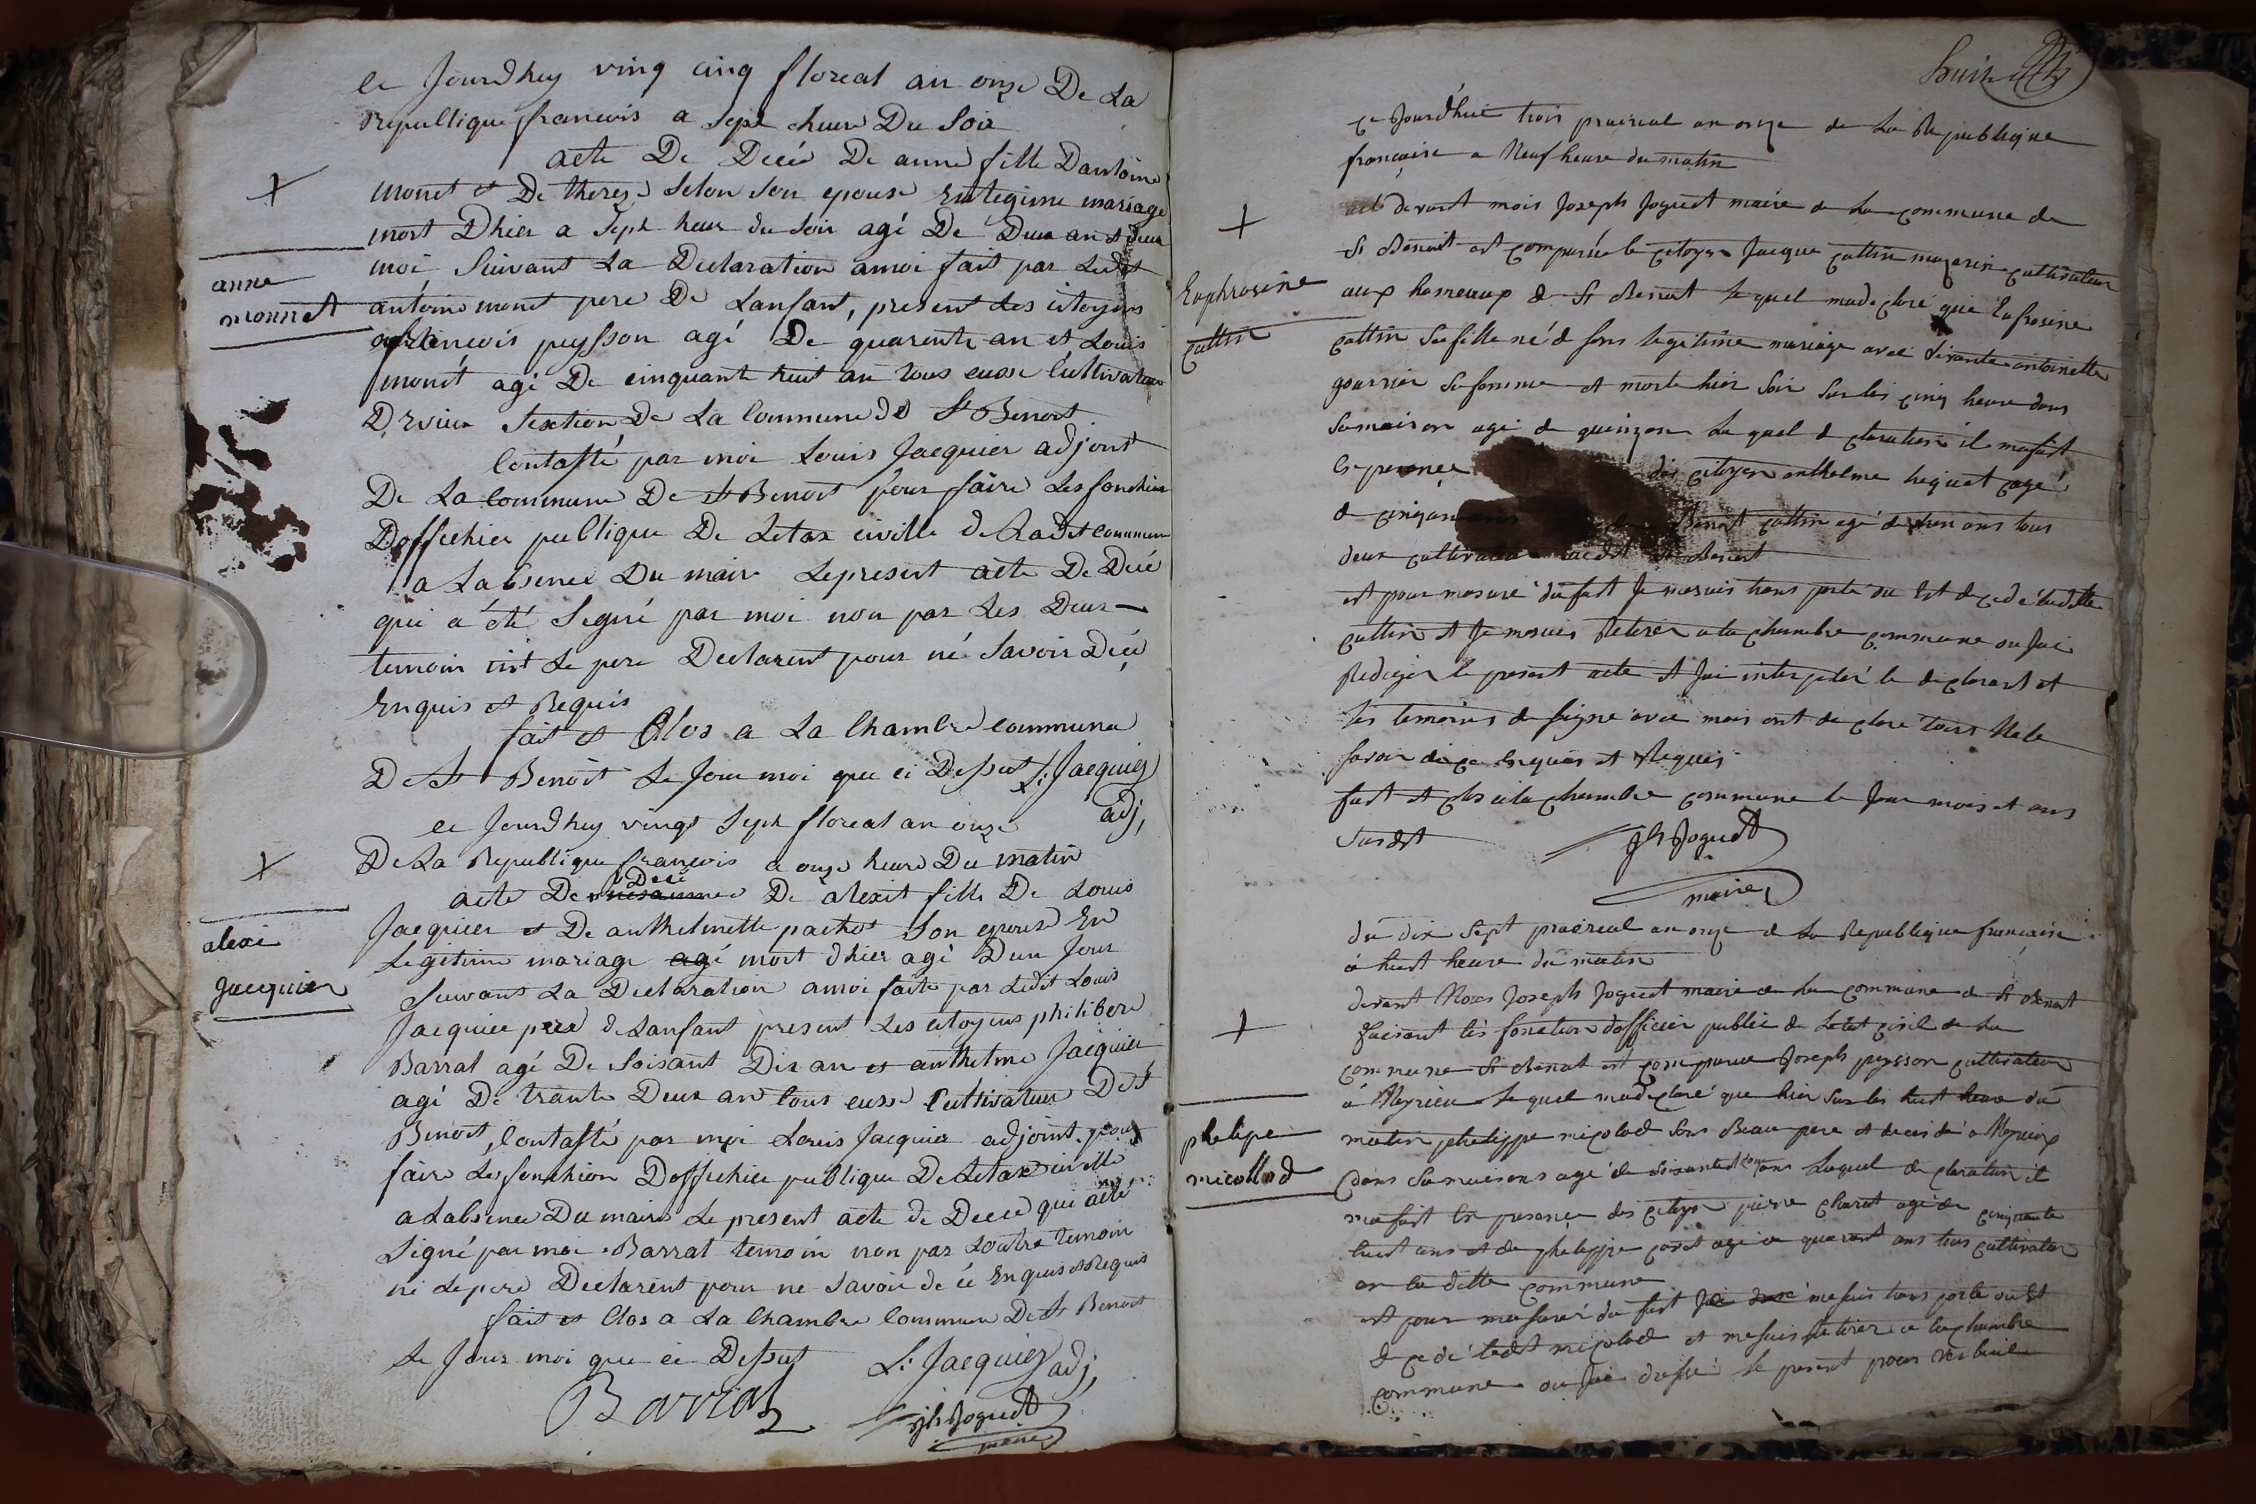 ce Jourdhuy ving cinq floreal an onze De La
Republique francois a Sept heure Du Soir
acte De Decée De anne fille Dantoine
monet et De therez Selon Son epouse En legime mariage
mort Dhier a Sept heur du Soir agé De Deux an et deux
moi Suivant La Declaration amoi fait par Ledit
anne
monnet
antoine monet pere De Lanfant, present Les citoyens
francois puysson agé De quarente an et Louis
monet agé De cinquant huit an tous eusse Cultivateur
Section De La Commune de St Benoit
Contasté par moi Louis Jacquier adjoint
De La Commune De St Benoit pour faire Les fonchion
Doffichier publique De Letax civille de Ladit commune
a Labsence Du maire Le present acte De Decé
qui a été Segné par moi non par Les Deux
temoin Le pere Declarent pour né Savoir Déé
Enquis et Requis
fait et Clos a La Chambre Commune
De St Benoit Le Jour moi que ci Desut L: Jacquier
adj,
ce Jourdhuy vingt Sept floreal an onze
De La Republique francois a onze heure Du matin
Decé
acte De De alexit fills De Louis
alexi
Jacquier
Jacquier et De anthelmette pachot Son epouse En
Legitime mariage agé mort dhier agé Dun Jour
Suivant La Declaration amoi faite par Ledit Louis
Jacquier pere de Lanfant present Les citoyens philibere
Barral agé De Soisant Dix an et anthelme Jacquier
agé De trante Deux an tous eusse Cultivateur De St
Benoit, Contasté par moi Louis Jacquier adjoint pour
faire Les fonchion Doffichier publique De Letax civille
a Labsence Du maire Le present acte de Decce qui a été
Signé par moi Barral temoin non par Loutre temoin
ni Le pere Declarent pour ne Savoir de ce Enquis et Requis
fait et Clos a La Chambre Commune De St Benoit
Le Jour moi que ci Desut L: Jacquier adj,
Barral
jh Joguet
maire
ce Jourd'huit trois praireal an onze de La Republique
française a Neuf heure du matin
devant mois Joseph Joguet maire de La commune de
St Benoit est comparu le citoyen Jacque cottin cultivateur
Euphrosine
cottin
aux hameaux de St Benoit Le quel madeclaré que Eufrosine
cottin Sa fille né de sons legitime mariage avec antoinette
gourrier Sa femme et morte hier Soir Sur les cinq heure dans
Sa maison agé de quinze La quel declaration il mafait
En presence des citoyen anthelme hequet agé
de Benoit cottin agé de ans tous
deux cultivateur St Benoit
et pour masuré du fait Je mesuis transporté ou Est decedé ladite
cottin et Je mesuis Retirer a la chambre commune ou Jai
Rediger le present acte et Jai interpeler le declarant et
les temoins de signe avec mois ont declare tous Ne le
Savoir Enquis et Requis
fait et clos a la chambre commune le Jour mois et ans
Susdit jh Joguet
maire
du dix Sept praireal an onze de La Republique française
a huit heure du matin
devant Nous Joseph Joguet maire de La commune de St Benoit
faisant les fonction dofficier public de Letat civil de La
commune St Benoit est comparue Joseph peysson cultivateur
phelipe
nicollod
à Meyrieu Le quel madeclaré que hier Sur les huit heure du
matin phelippe nicolod Sons Beau pere et decedé a
dans Sa maisons agé de Soixante ans Laquel declaration il
mafait En presence des citoyen pierre charet agé de cinquante
huit ans et de phelippe agé de quarant ans tous cultivateur
en la ditte commune
et pour masuré du fait Je mesuis transporté ou Est
decedé Ledit nicolod et mesuis Retirer a la chambre
commune ou Jai dressé le present proces verbail